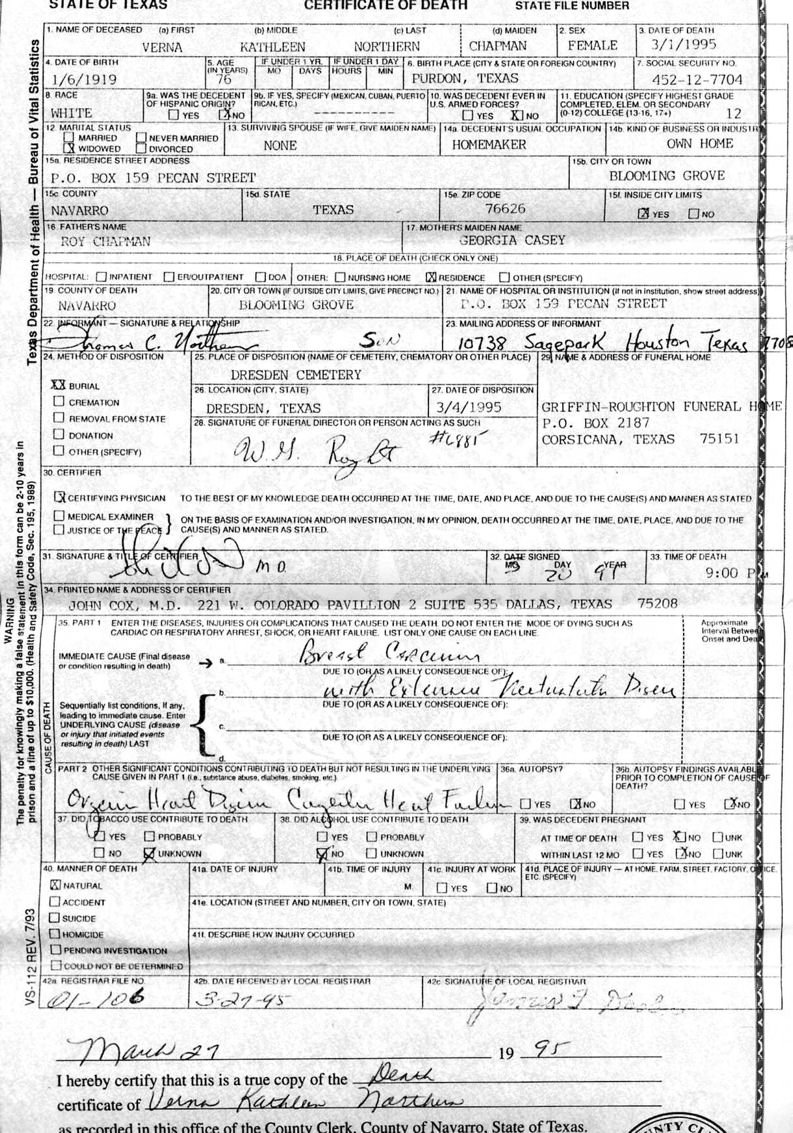 STATE OF TEXAS CERTIFICATE OF DEATH STATE FILE NUMBER
1. NAME OF DECEASED (a) FIRST (b) MIDDLE (c) LAST (d) MAIDEN 2. SEX 3. DATE OF DEATH
VERNA KATHLEEN NORTHERN CHAPMAN FEMALE 3/1/1995
4. DATE OF BIRTH 5. AGE (IN YEARS) IF UNDER 1 YR. MO DAYS IF UNDER 1 DAY HOURS MIN 6. BIRTH PLACE (CITY & STATE OR FOREIGN COUNTRY) 7. SOCIAL SECURITY NO.
1/6/1919 76 PURDON, TEXAS 452-12-7704
8. RACE 9a. WAS THE DECEDENT OF HISPANIC ORIGIN? 9b. IF YES, SPECIFY (MEXICAN, CUBAN, PUERTO RICAN, ETC.) 10. WAS DECEDENT EVER IN U.S. ARMED FORCES? 11. EDUCATION (SPECIFY HIGHEST GRADE COMPLETED, ELEM. OR SECONDARY (0-12) COLLEGE (13-16, 17+)
WHITE YES X NO YES X NO 12
12. MARITAL STATUS 13. SURVIVING SPOUSE (IF WIFE, GIVE MAIDEN NAME) 14a. DECEDENT'S USUAL OCCUPATION 14b. KIND OF BUSINESS OR INDUSTR
MARRIED NEVER MARRIED
X WIDOWED DIVORCED NONE HOMEMAKER OWN HOME
15a. RESIDENCE STREET ADDRESS 15b. CITY OR TOWN
P.O. BOX 159 PECAN STREET BLOOMING GROVE
15c. COUNTY 15d. STATE 15e. ZIP CODE 15f. INSIDE CITY LIMITS
NAVARRO TEXAS 76626 X YES NO
16. FATHER'S NAME 17. MOTHER'S MAIDEN NAME
ROY CHAPMAN GEORGIA CASEY
18. PLACE OF DEATH (CHECK ONLY ONE)
HOSPITAL: INPATIENT ER/OUTPATIENT DOA OTHER: NURSING HOME X RESIDENCE OTHER (SPECIFY)
19. COUNTY OF DEATH 20. CITY OR TOWN (IF OUTSIDE CITY LIMITS, GIVE PRECINCT NO.) 21. NAME OF HOSPITAL OR INSTITUTION (If not in institution, show street address)
NAVARRO BLOOMING GROVE P.O. BOX 159 PECAN STREET
22. INFORMANT — SIGNATURE & RELATIONSHIP 23. MAILING ADDRESS OF INFORMANT
Thomas C. Northern Son 10738 Sagepark Houston Texas
24. METHOD OF DISPOSITION 25. PLACE OF DISPOSITION (NAME OF CEMETERY, CREMATORY OR OTHER PLACE) 29. NAME & ADDRESS OF FUNERAL HOME
DRESDEN CEMETERY
XX BURIAL 26. LOCATION (CITY, STATE) 27. DATE OF DISPOSITION
CREMATION DRESDEN, TEXAS 3/4/1995 GRIFFIN-ROUGHTON FUNERAL HOME
REMOVAL FROM STATE 28. SIGNATURE OF FUNERAL DIRECTOR OR PERSON ACTING AS SUCH P.O. BOX 2187
DONATION CORSICANA, TEXAS 75151
OTHER (SPECIFY)
30. CERTIFIER
X CERTIFYING PHYSICIAN TO THE BEST OF MY KNOWLEDGE DEATH OCCURRED AT THE TIME, DATE, AND PLACE, AND DUE TO THE CAUSE(S) AND MANNER AS STATED
MEDICAL EXAMINER ON THE BASIS OF EXAMINATION AND/OR INVESTIGATION, IN MY OPINION, DEATH OCCURRED AT THE TIME, DATE, PLACE, AND DUE TO THE
JUSTICE OF THE PEACE CAUSE(S) AND MANNER AS STATED.
31. SIGNATURE & TITLE OF CERTIFIER 32. DATE SIGNED MO DAY YEAR 33. TIME OF DEATH
M.D. 20 9:00 PM
34. PRINTED NAME & ADDRESS OF CERTIFIER
JOHN COX, M.D. 221 W. COLORADO PAVILLION 2 SUITE 535 DALLAS, TEXAS 75208
35. PART 1 ENTER THE DISEASES, INJURIES OR COMPLICATIONS THAT CAUSED THE DEATH. DO NOT ENTER THE MODE OF DYING SUCH AS CARDIAC OR RESPIRATORY ARREST, SHOCK, OR HEART FAILURE. LIST ONLY ONE CAUSE ON EACH LINE.
Approximate Interval Between Onset and Death
IMMEDIATE CAUSE (Final disease or condition resulting in death) → a. Breast
DUE TO (OR AS A LIKELY CONSEQUENCE OF):
b. with
DUE TO (OR AS A LIKELY CONSEQUENCE OF):
Sequentially list conditions, if any, leading to immediate cause. Enter UNDERLYING CAUSE (disease or injury that initiated events resulting in death) LAST
c.
DUE TO (OR AS A LIKELY CONSEQUENCE OF):
d.
CAUSE OF DEATH
PART 2 OTHER SIGNIFICANT CONDITIONS CONTRIBUTING TO DEATH BUT NOT RESULTING IN THE UNDERLYING CAUSE GIVEN IN PART 1 (i.e., substance abuse, diabetes, smoking, etc.) 36a. AUTOPSY? 36b. AUTOPSY FINDINGS AVAILABLE PRIOR TO COMPLETION OF CAUSE OF DEATH?
Heart Heart YES X NO YES X NO
37. DID TOBACCO USE CONTRIBUTE TO DEATH 38. DID ALCOHOL USE CONTRIBUTE TO DEATH 39. WAS DECEDENT PREGNANT
YES PROBABLY YES PROBABLY AT TIME OF DEATH YES X NO UNK
NO UNKNOWN NO UNKNOWN WITHIN LAST 12 MO YES X NO UNK
40. MANNER OF DEATH 41a. DATE OF INJURY 41b. TIME OF INJURY 41c. INJURY AT WORK 41d. PLACE OF INJURY — AT HOME, FARM, STREET, FACTORY, OFFICE, ETC. (SPECIFY)
X NATURAL M. YES NO
ACCIDENT 41e. LOCATION (STREET AND NUMBER, CITY OR TOWN, STATE)
SUICIDE
HOMICIDE 41f. DESCRIBE HOW INJURY OCCURRED
PENDING INVESTIGATION
COULD NOT BE DETERMINED
42a. REGISTRAR FILE NO. 42b. DATE RECEIVED BY LOCAL REGISTRAR 42c. SIGNATURE OF LOCAL REGISTRAR
01-106 3-27-95
March 27 1995
I hereby certify that this is a true copy of the Death
certificate of Verna Kathleen Northern
as recorded in this office of the County Clerk, County of Navarro, State of Texas.
Texas Department of Health — Bureau of Vital Statistics
WARNING
The penalty for knowingly making a false statement in this form can be 2-10 years in
prison and a fine of up to $10,000. (Health and Safety Code, Sec. 195, 1989)
VS-112 REV. 7/93